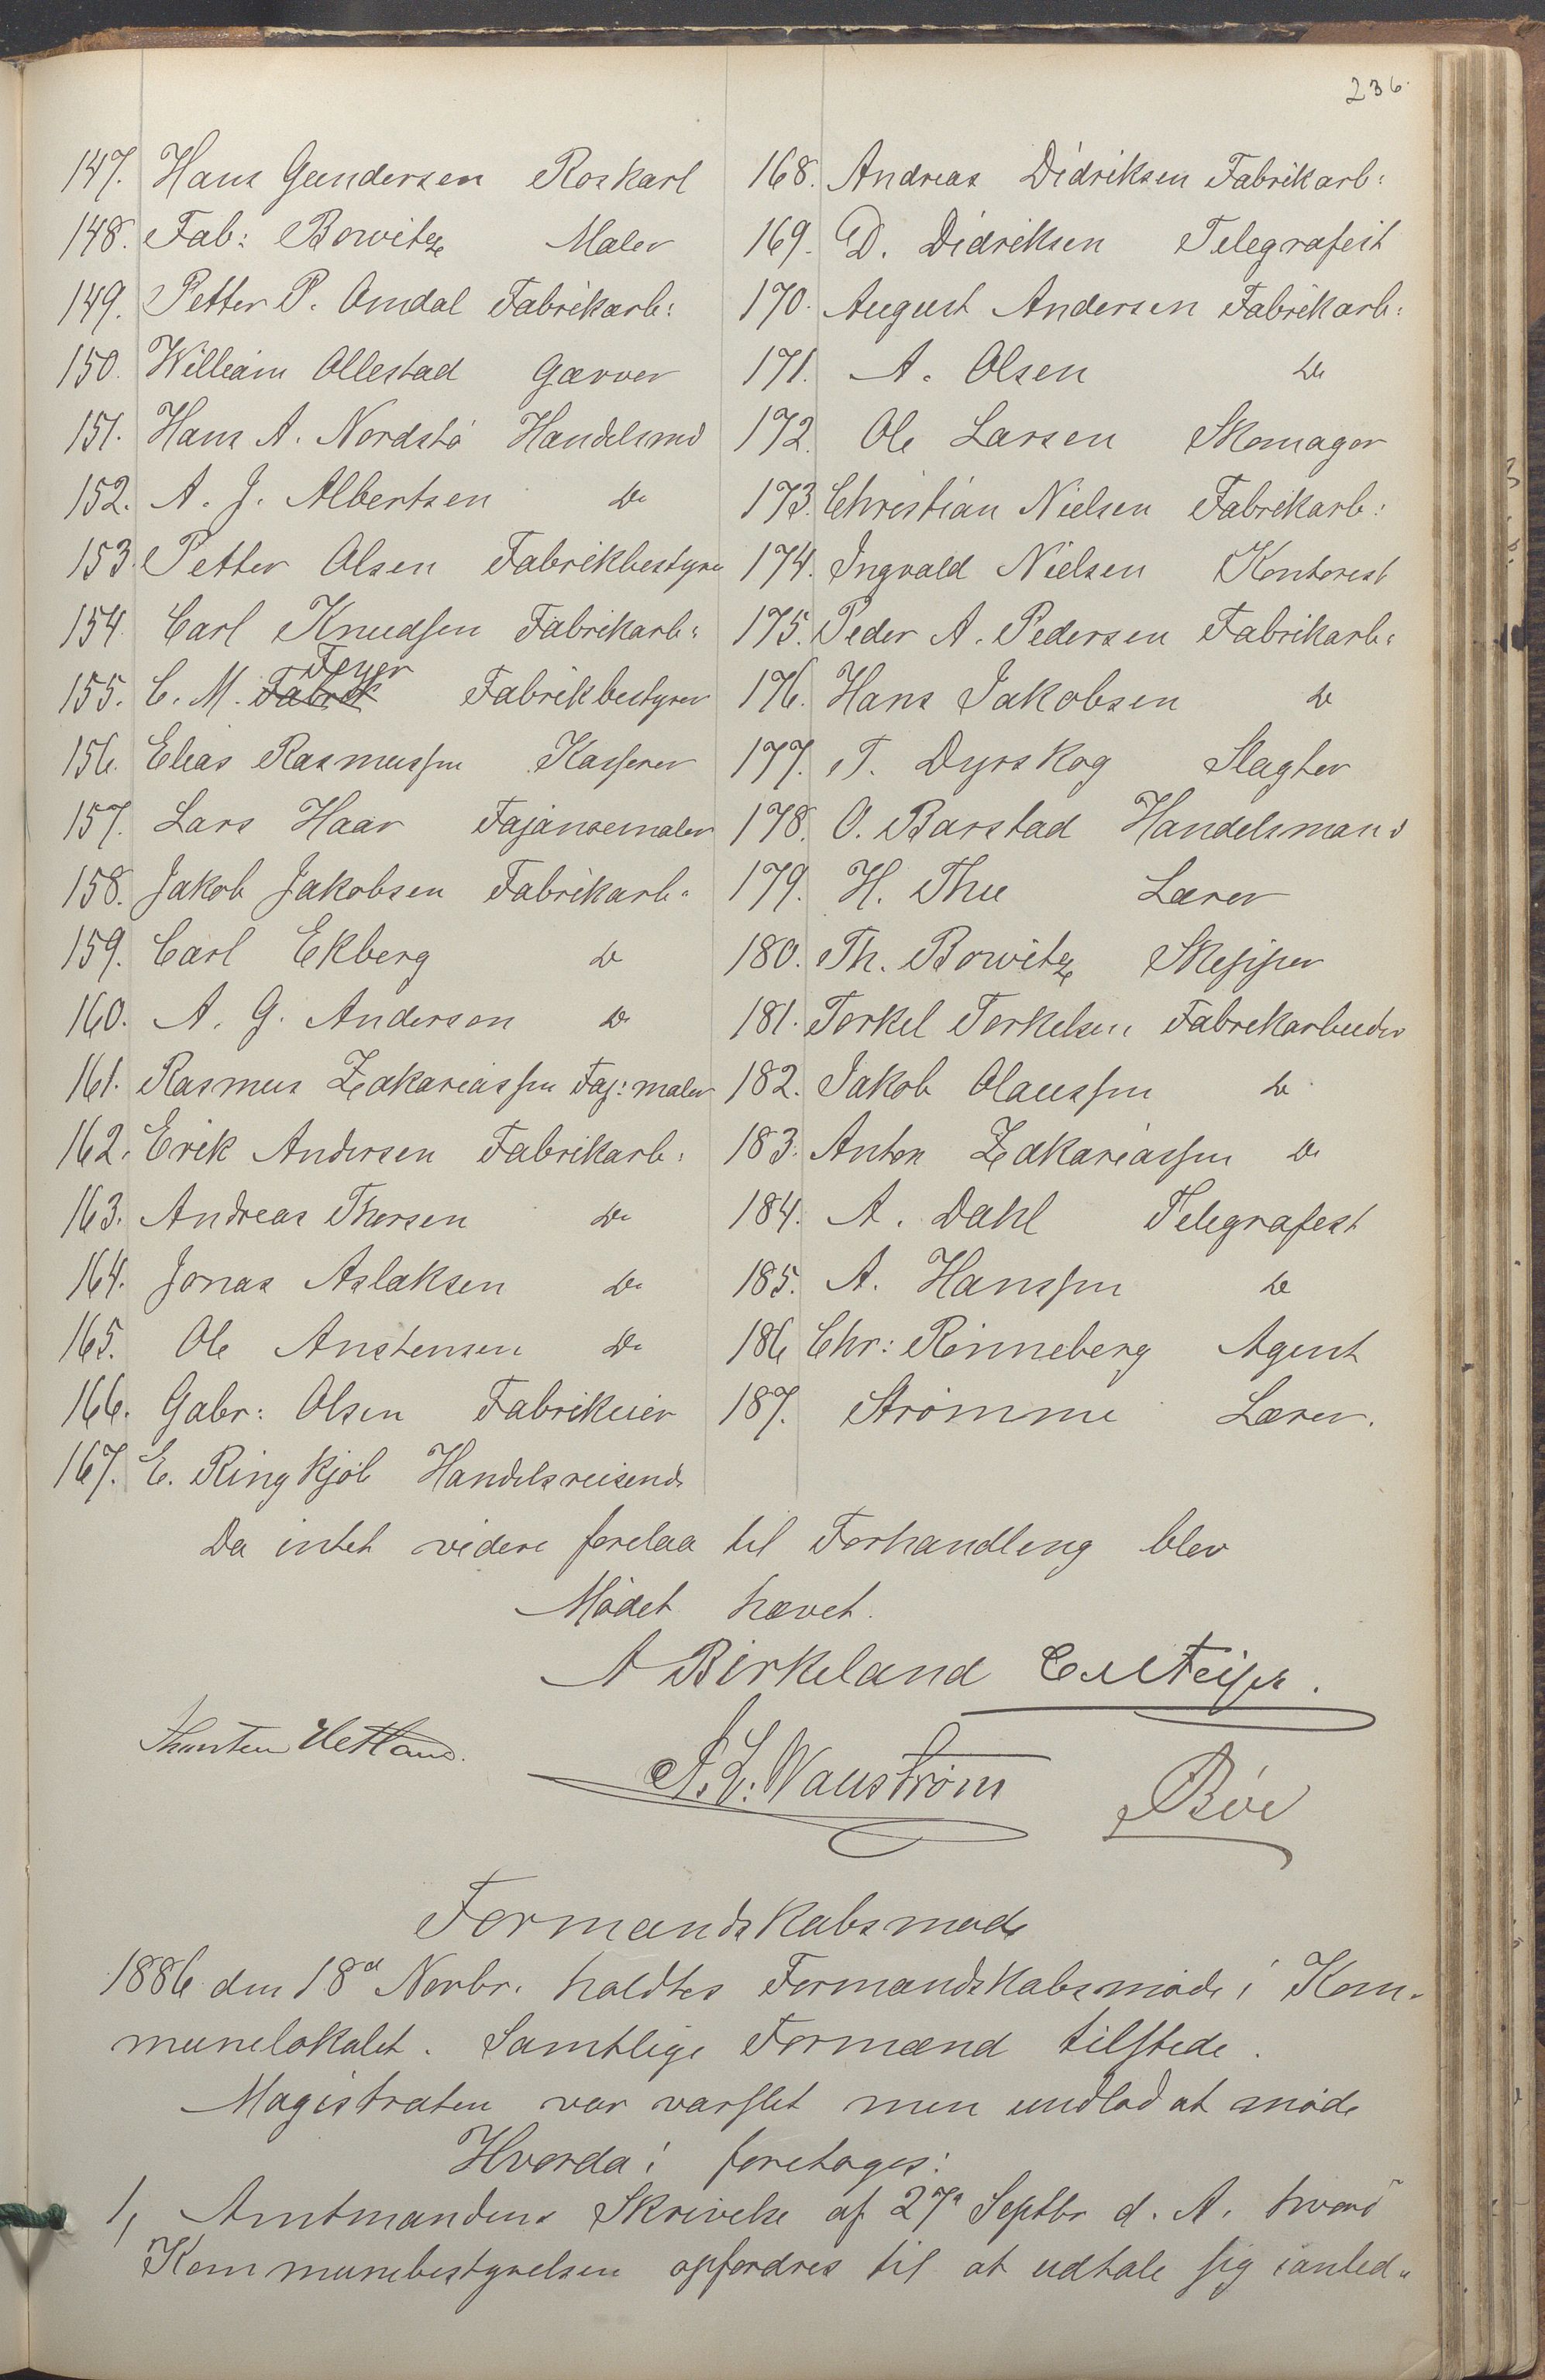 236.
147. Hans Gundersen Roskarl
148. Fab: Bowitz Maler
149. Petter P. Omdal Fabrikarb:
150. William Ollestad Garver
151. Hans A. Nordstö Handelsmd
152. A. J. Albertsen do
153. Petter Olsen Fabrikbestyrer
154. Carl Knudsen Fabrikarb:
155. C. M. Fabrik Feyer Fabrikbestyrer
156. Elias Rasmussen Kasserer
157. Lars Haar Fajansemaler
158. Jakob Jakobsen Fabrikarb:
159. Carl Ekberg do
160. A. G. Anderson do
161. Rasmus Zakariassen Faj: maler
162. Erik Andersen Fabrikarb:
163. Andreas Thorsen do
164. Jonas Aslaksen do
165. Ole Anstensen do
166. Gabr: Olsen Fabrikeier
167. E. Ringkjöb Handelsreisende
168. Andreas Didriksen Fabrikarb:
169. D. Didriksen Telegrafist
170. August Andersen Fabrikarb:
171. A. Olsen do
172. Ole Larsen Skomager
173. Christian Nielsen Fabrikarb:
174. Ingvald Nielsen Kontorist
175. Peder A. Pedersen Fabrikarb:
176. Hans Jakobsen do
177. T. Dyrskog Slagter
178. O. Barstad Handelsmand
179. H. Thu Lærer
180. Th. Bowitz Skipper
181. Torkel Torkelsen Fabrikarbeider
182. Jakob Olaussen do
183. Anton Zakariassen do
184. A. Dahl Telegrafist
185. A. Hanssen do
186 Chr: Rinneberg Agent
187. Strömme Lærer.
Da intet videre forelaa til Forhandling blev
Mödet hævet.
A Birkeland
Hetland.
A. L. Wanström Böe
Formandskabsmöde
1886 den 18d Novbr. holdtes Formandskabsmöde i Kom-
munelokalet. Samtlige Formænd tilstede.
Magistraten var varslet men undlod at möde
Hvorda! foretoges:
1, Amtmandens Skrivelse af 27d Septbr d. A. hvori
Kommunebestyrelsen opfordres til at udtale sig ianled-